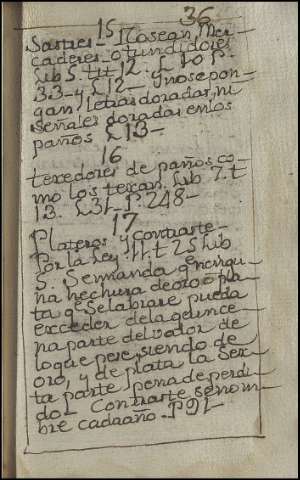 36
15
Sastres - Cosean, Mer-
caderes o tundidores
Lib 5. tit 12. L 10 P.
33 - y L 12 - y nose pon-
gan, letras doradas, ni
señales doradas en los
paños L 13 -
16
texedores de paños co-
mo los texan. Lib 7. t
13. L 31 - P. 248 -
17
Plateros y contraste -
Por la Ley 11. t 25 Lib
5. Semanda q en ningu-
na hechura de oro o pla-
ta q Se labrare pueda
exceder dela quince
na parte del valor de
lo que pese, siendo de
oro, y de plata la Sex-
ta parte pena de perdi-
do - Contraste se nom-
bre cada año - P 91